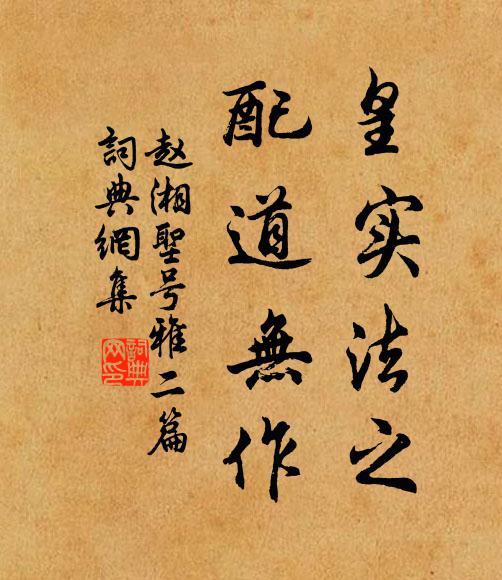 皇实法之
配道無作
赵湘聖号雅二篇
詞典網集
詞典網印